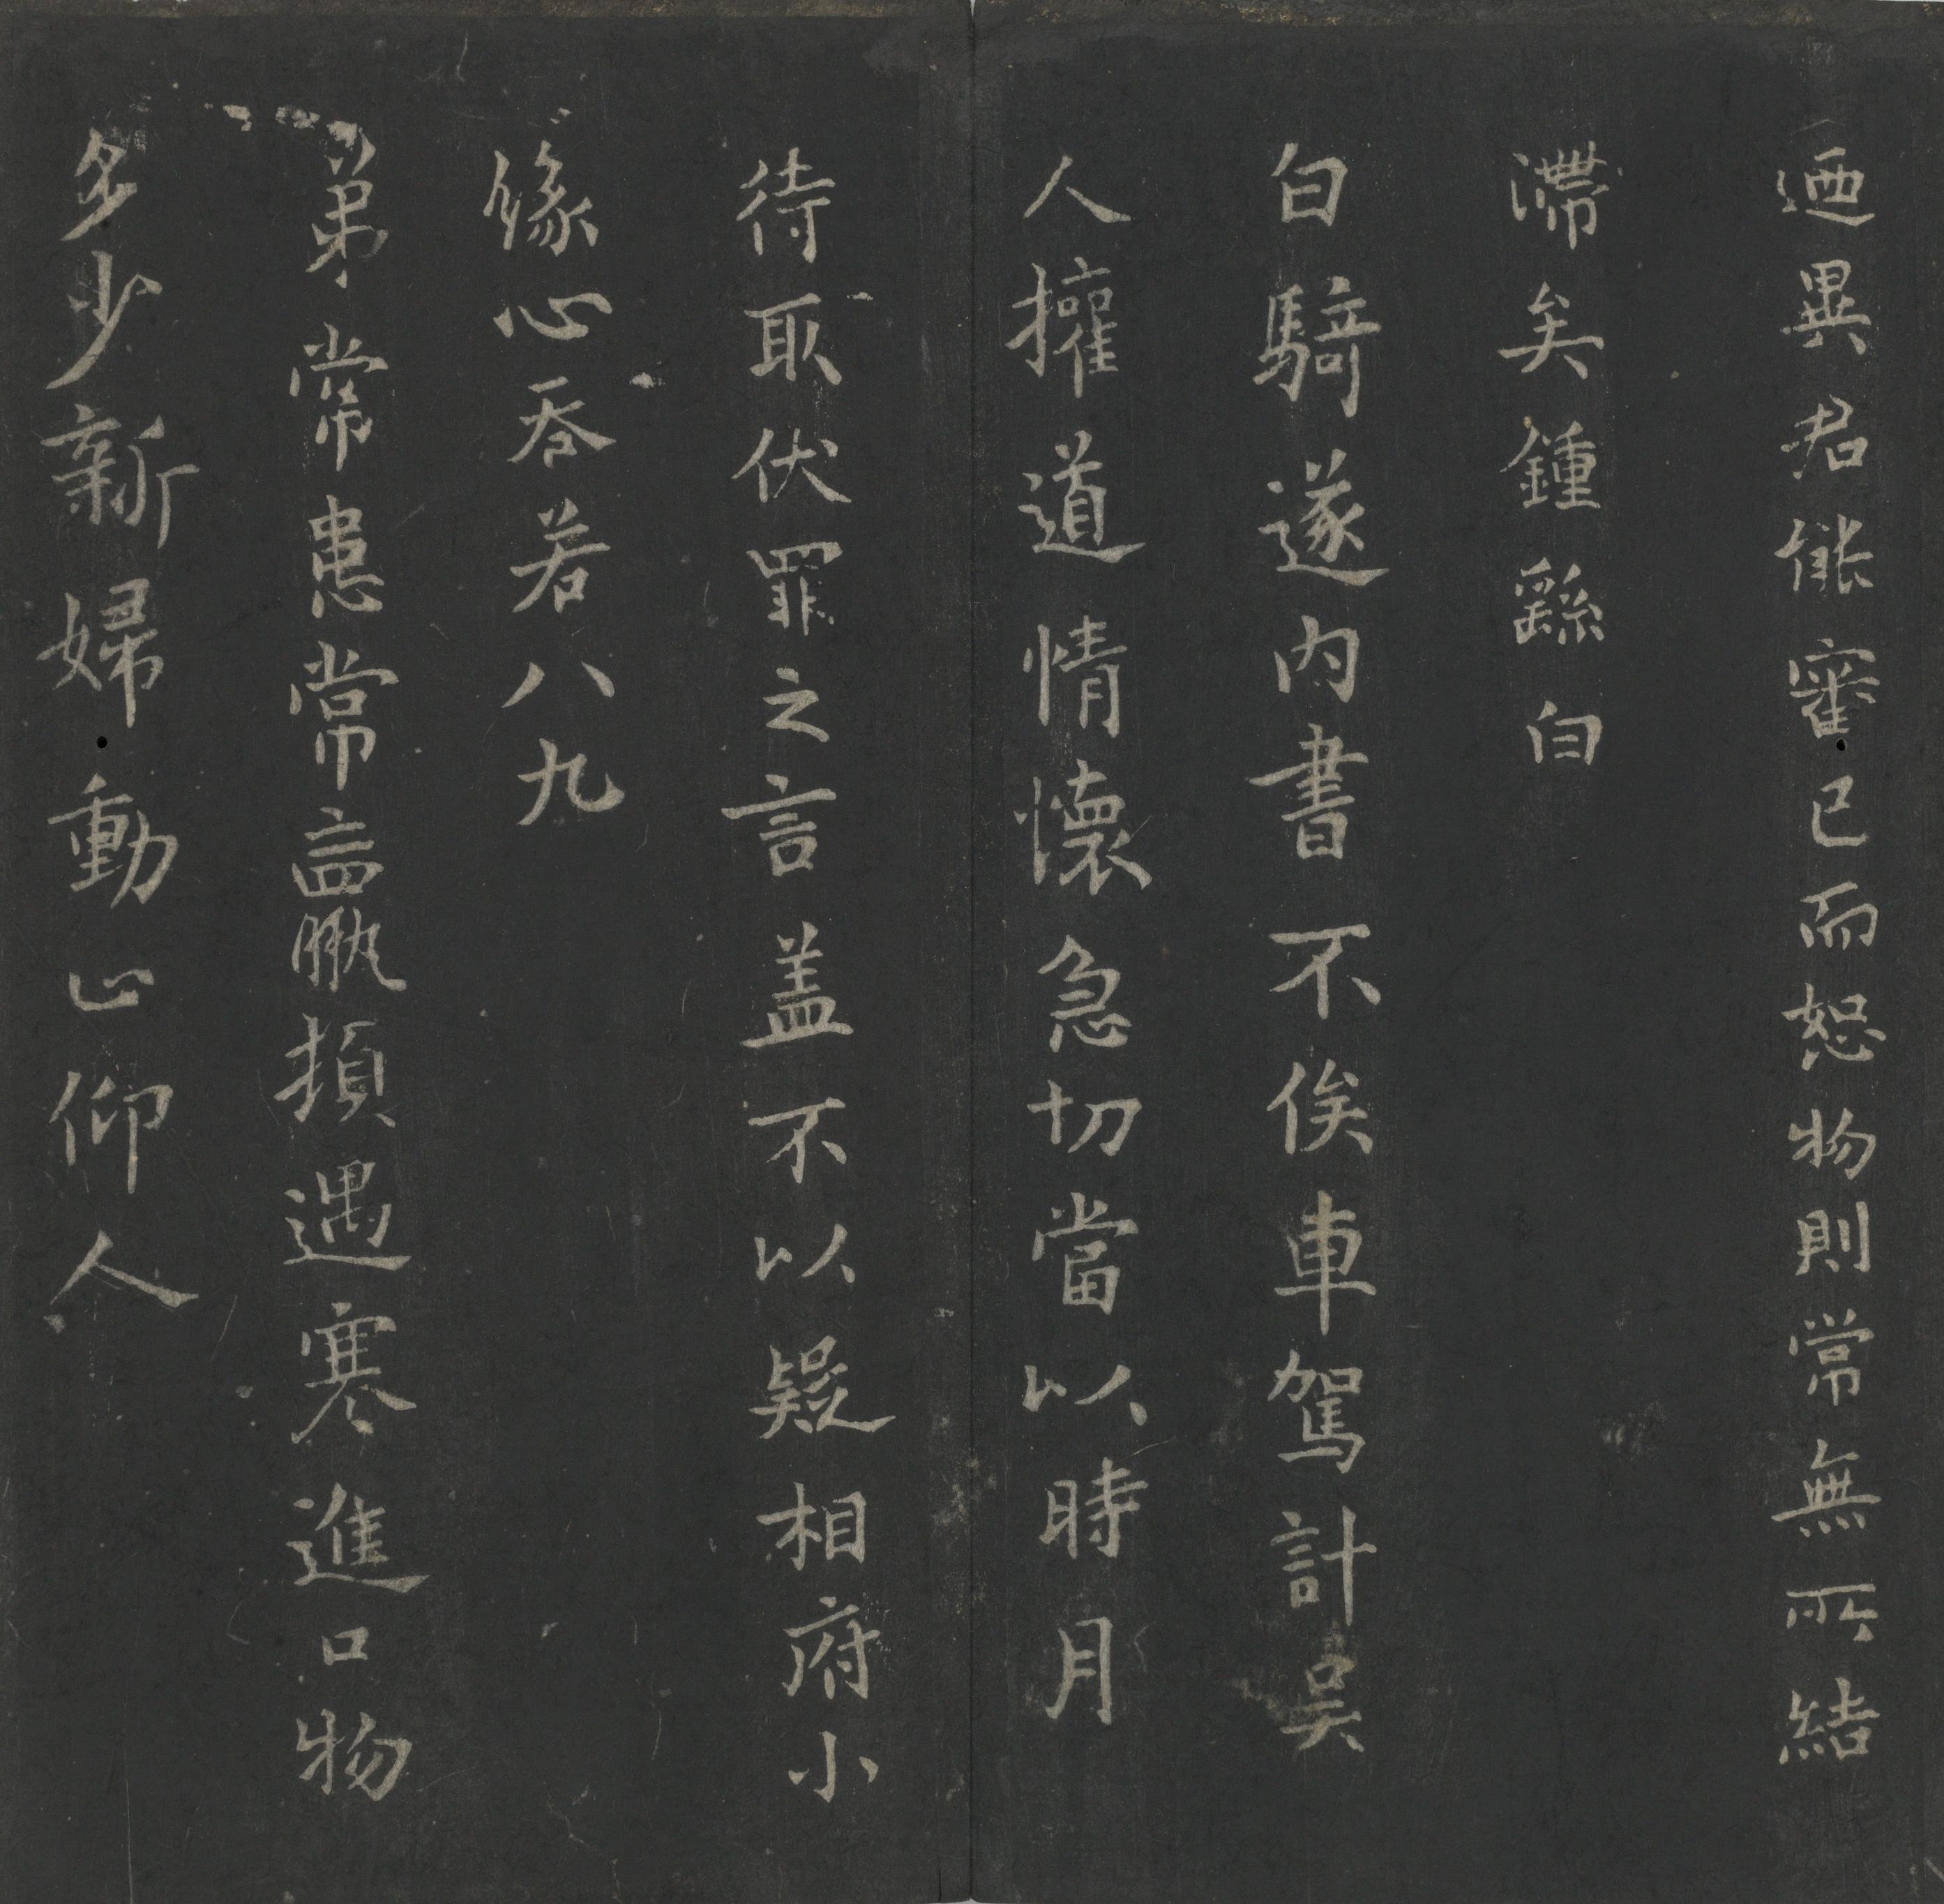 迺異君能審己而恕物則常無所結
滯矣鍾繇白
白騎遂內書不俟車駕計吳
人權道情懷急切當以時月
待取伏罪之言蓋不以疑相府小
緣心吞若八九
弟常患常羸頓遇寒進口物
多少新婦動止仰人